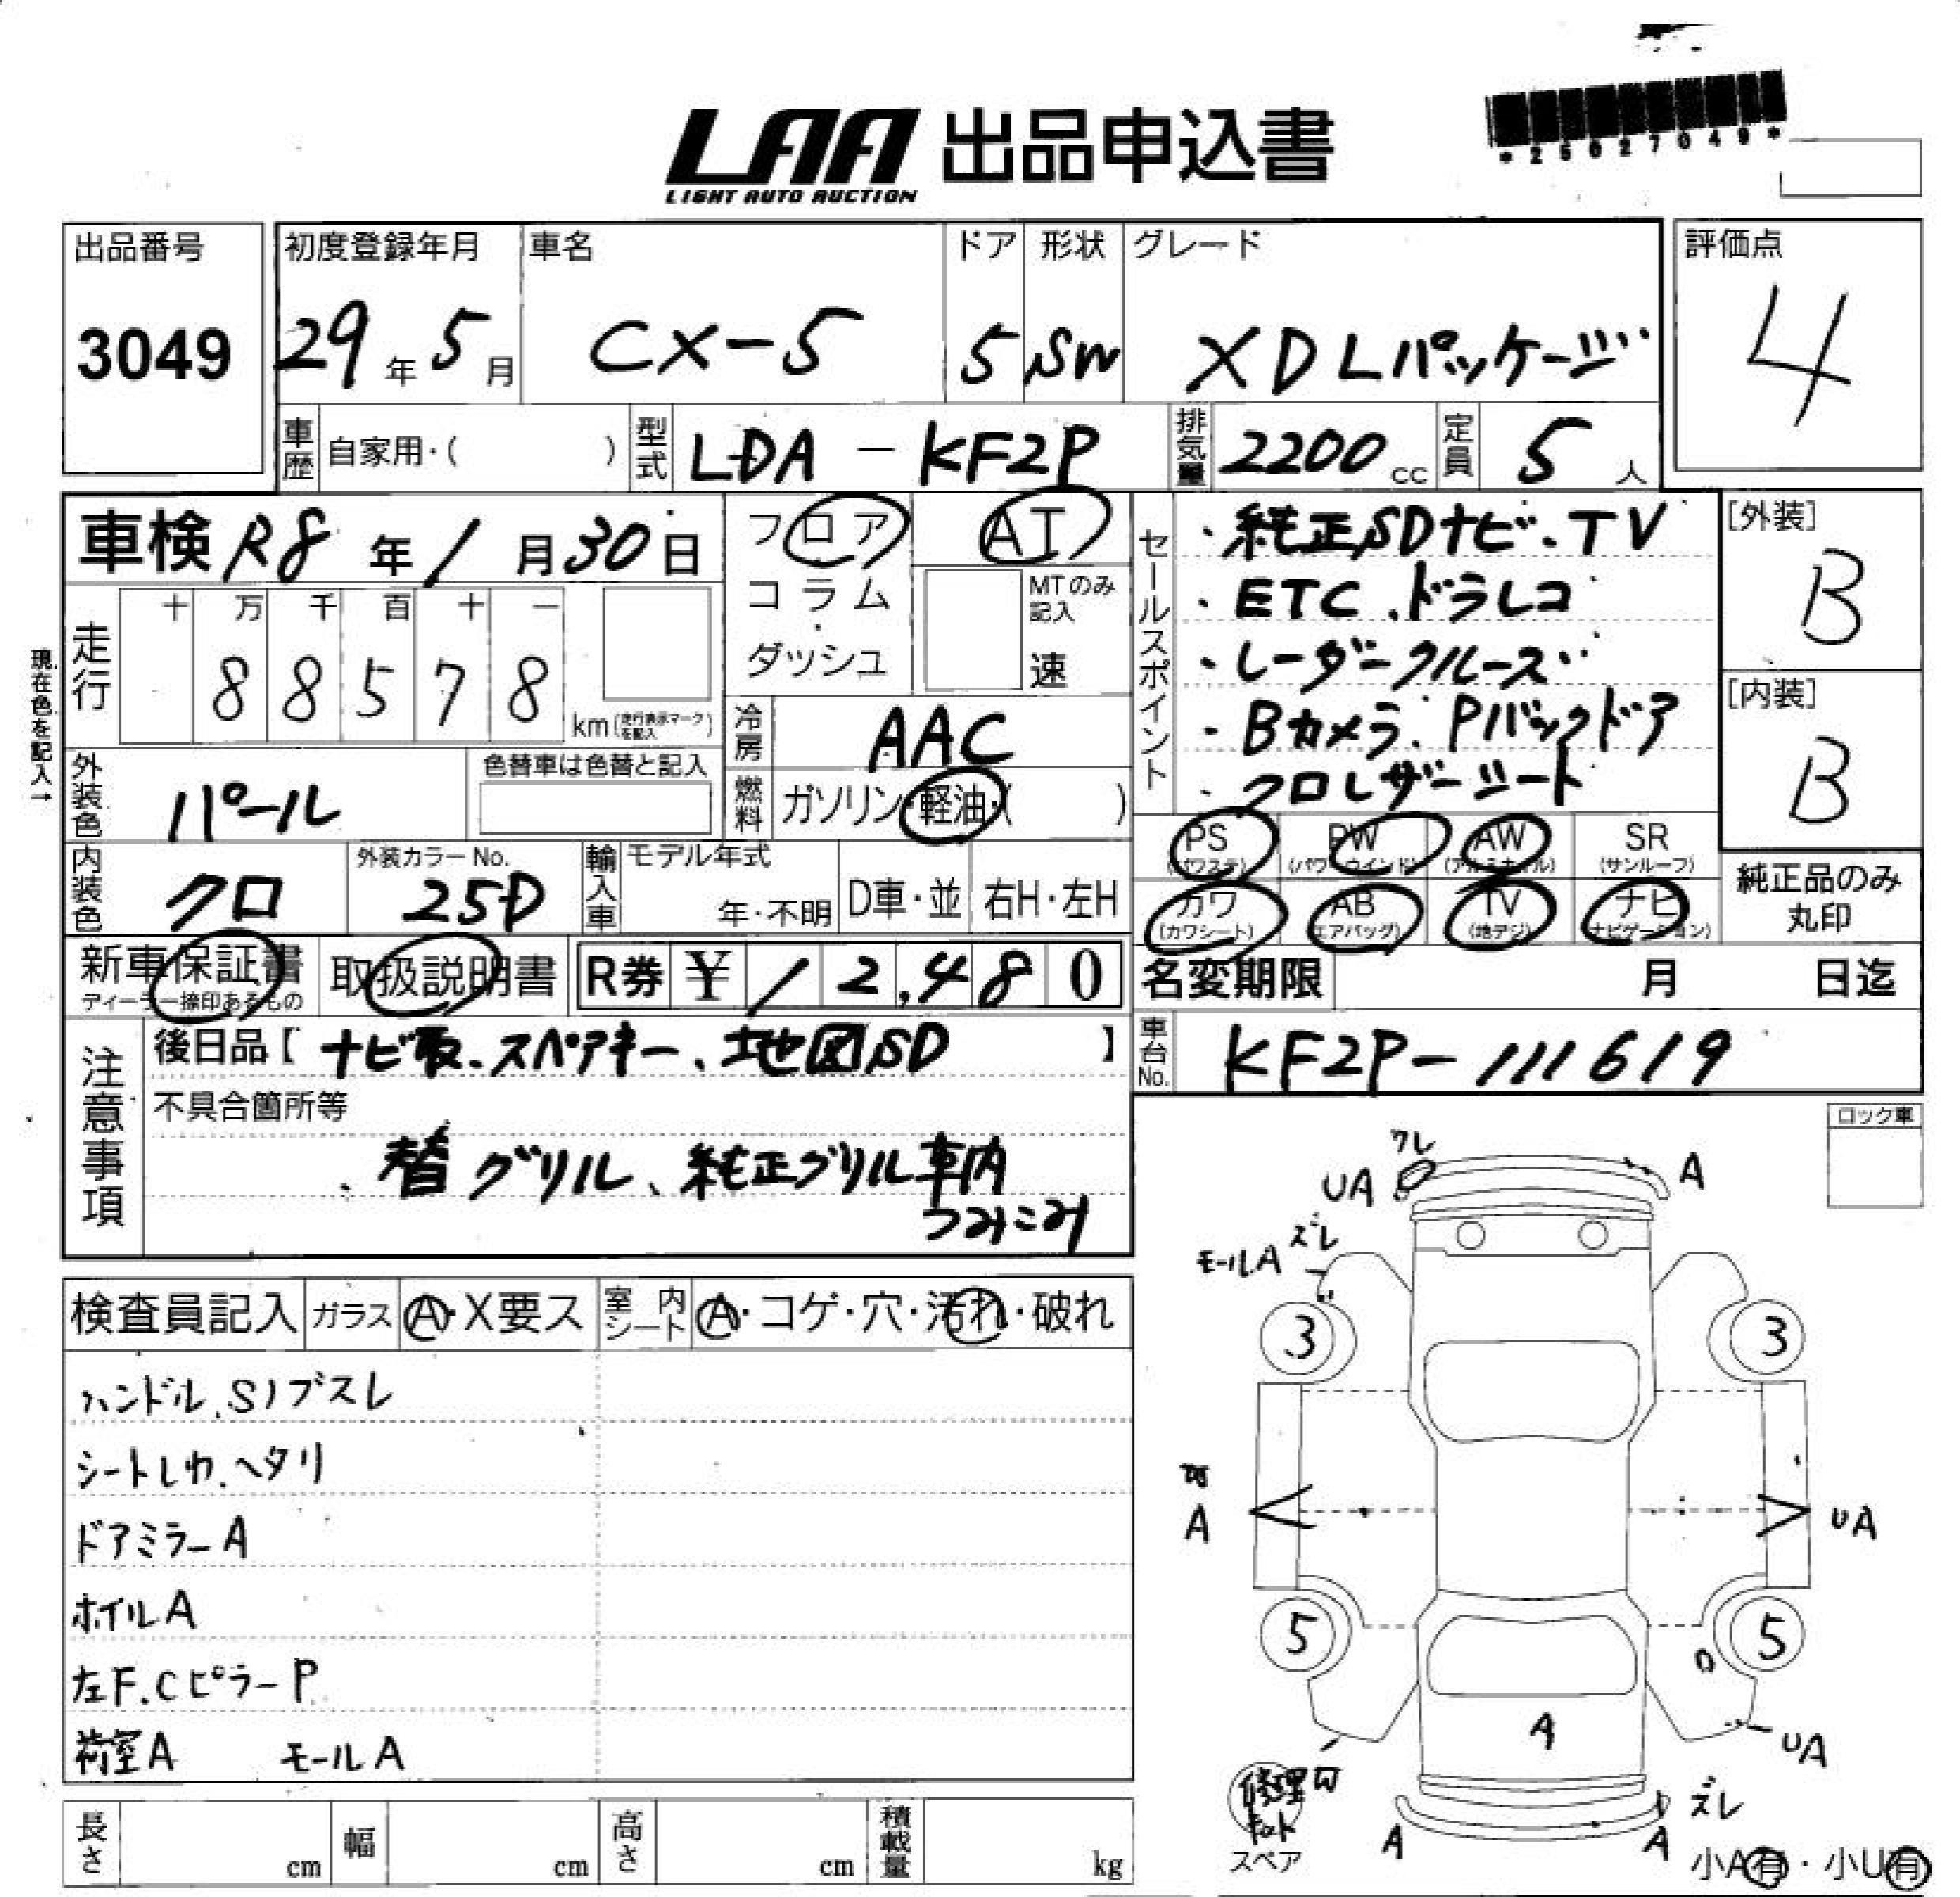 *25027049*
LAA 出品申込書
LIGHT AUTO AUCTION
出品番号 初度登録年月 車名 ドア 形状 グレード 評価点
3049 29年 5月 CX-5 5 SW XD Lパッケージ 4
車歴 自家用・( ) 型式 LDA-KF2P 排気量 2200cc 定員 5人
車検 R8年 1月 30日 フロア AT
コラム MTのみ記入
ダッシュ 速
走行 十 万 千 百 十 一
88578 km (走行表示マークを記入)
現在色を記入→
冷房 AAC
外装色 パール 色替車は色替と記入 燃料 ガソリン・軽油・( )
内装色 クロ 外装カラーNo. 25D 輸入車 モデル年式 年・不明 D車・並 右H・左H
セールスポイント
・純正SDナビ、TV
・ETC、ドラレコ
・レーダークルーズ
・Bカメラ、Pバックドア
・クロレザーシート
[外装] B
[内装] B
PS (パワステ) PW (パワーウインド) AW (アルミホイル) SR (サンルーフ)
カワ (カワシート) AB (エアバッグ) TV (地デジ) ナビ (ナビゲーション)
純正品のみ丸印
新車保証書 取扱説明書 R券 ¥12,480
ディーラー捺印あるもの
名変期限 月 日迄
車台No. KF2P-111619
注意事項
後日品【ナビ取、スペアキー、地図SD】
不具合箇所等
・替グリル、純正グリル車内
つみこみ
ロック車
検査員記入 ガラス A・X要ス 室内シート A・コゲ・穴・汚れ・破れ
ハンドル、Sノブスレ
シートしわ、ヘタリ
ドアミラーA
ホイルA
左F、CピラーP
荷室A モールA
長さ cm 幅 cm 高さ cm 積載量 kg
ワレ
UA A
ズレ
モールA
3 3
A UA
5 5
A UA
修理キット
スペア
ズレ
A A
小A有・小U有